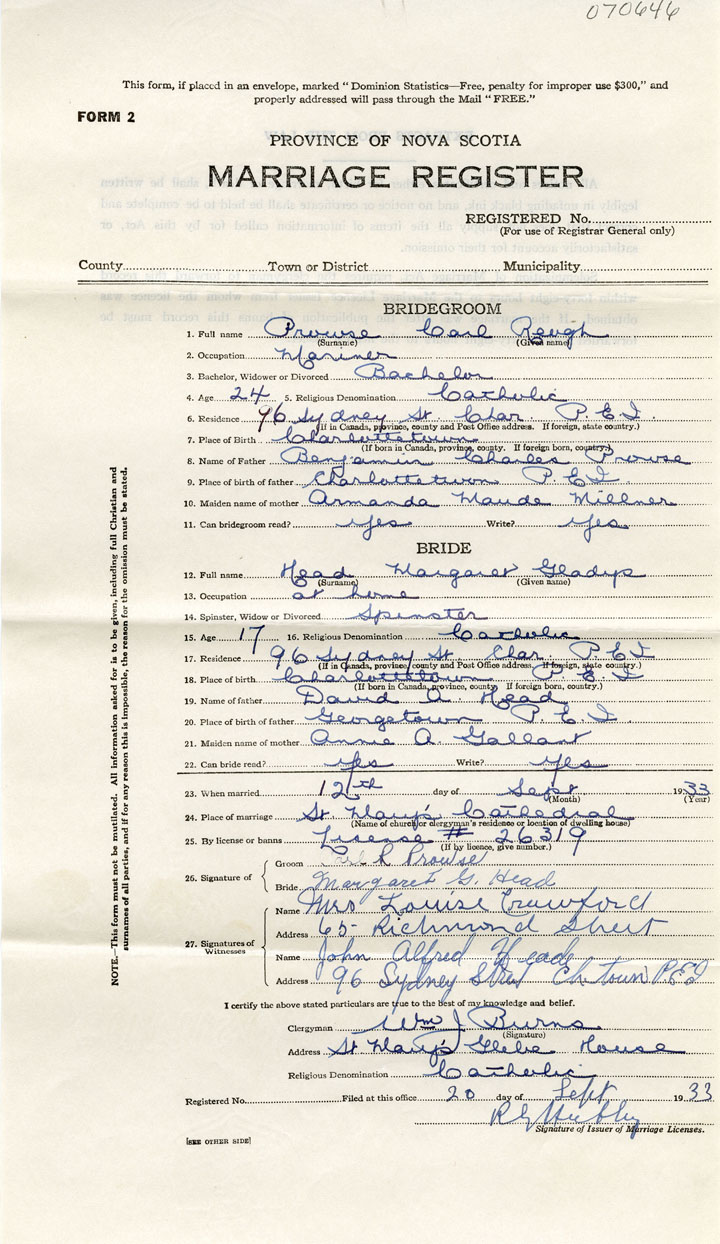 070646
This form, if placed in an envelope, marked "Dominion Statistics—Free, penalty for improper use $300," and
properly addressed will pass through the Mail "FREE."
FORM 2
PROVINCE OF NOVA SCOTIA
MARRIAGE REGISTER
REGISTERED No.
(For use of Registrar General only)
County Town or District Municipality
BRIDEGROOM
1. Full name Prowse Carl Reugh
(Surname) (Given name)
2. Occupation Mariner
3. Bachelor, Widower or Divorced Bachelor
4. Age 24 5. Religious Denomination Catholic
6. Residence 96 Sydney St Char P.E.I.
(If in Canada, province, county and Post Office address. If foreign, state country.)
7. Place of Birth Charlottetown
(If born in Canada, province, county. If foreign born, country.)
8. Name of Father Benjamin Charles Prowse
9. Place of birth of father Charlottetown P.E.I.
10. Maiden name of mother Armanda Maude Millner
11. Can bridegroom read? yes Write? yes
BRIDE
12. Full name Head Margaret Gladys
(Surname) (Given name)
13. Occupation at home
14. Spinster, Widow or Divorced Spinster
15. Age 17 16. Religious Denomination Catholic
17. Residence 96 Sydney St Char. P.E.I
(If in Canada, province, county and Post Office address. If foreign, state country.)
18. Place of birth Charlottetown P.E.I
(If born in Canada, province, county. If foreign born, country.)
19. Name of father David A. Head
20. Place of birth of father Georgetown P.E.I.
21. Maiden name of mother Annie A. Gallant
22. Can bride read? yes Write? yes
23. When married 12th day of Sept 1933
(Month) (Year)
24. Place of marriage St. Mary's Cathedral
(Name of church or clergyman's residence or location of dwelling house)
25. By license or banns License # 26319
(If by licence, give number.)
26. Signature of
Groom R Prowse
Bride Margaret G. Head
27. Signatures of Witnesses
Name Mrs Louise Crawford
Address 65- Richmond Street
Name John Alfred Heade
Address 96 Sydney Street Ch. town P.E.I
I certify the above stated particulars are true to the best of my knowledge and belief.
Clergyman Wm J Burns
(Signature)
Address St Mary's Glebe House
Religious Denomination Catholic
Registered No. Filed at this office 20 day of Sept 1933
Signature of Issuer of Marriage Licenses.
[SEE OTHER SIDE]
NOTE.—This form must not be mutilated. All information asked for is to be given, including full Christian and
surnames of all parties, and if for any reason this is impossible, the reason for the omission must be stated.